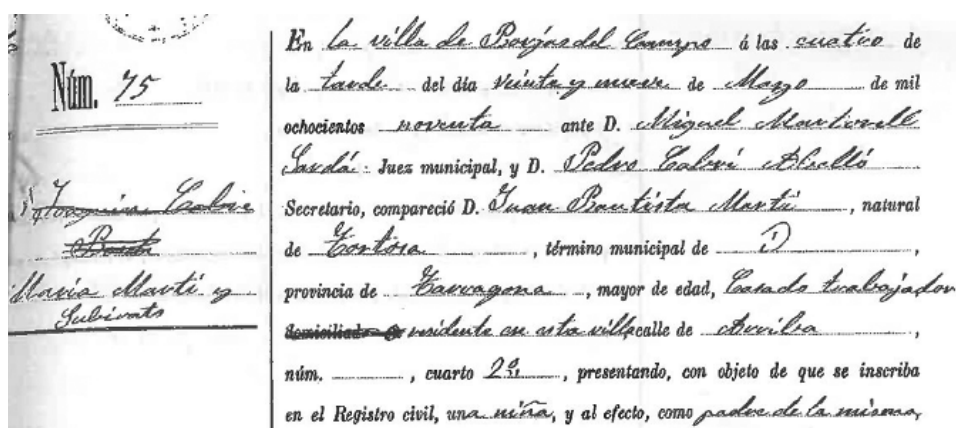 Núm. 75
Joaquina Calvé
María Martí y
Subirats
En la villa de Borjas del Campo á las cuatro de
la tarde del día veinte y nueve de Marzo de mil
ochocientos noventa ante D. Miguel Martorell
Sardá Juez municipal, y D. Pedro Calvé Abelló
Secretario, compareció D. Juan Bautista Martí, natural
de Tortosa, término municipal de
provincia de Tarragona, mayor de edad, Casado trabajador
domiciliado residente en esta villa calle de Arriba,
núm. , cuarto 2º, presentando, con objeto de que se inscriba
en el Registro civil, una niña, y al efecto, como padre de la misma,